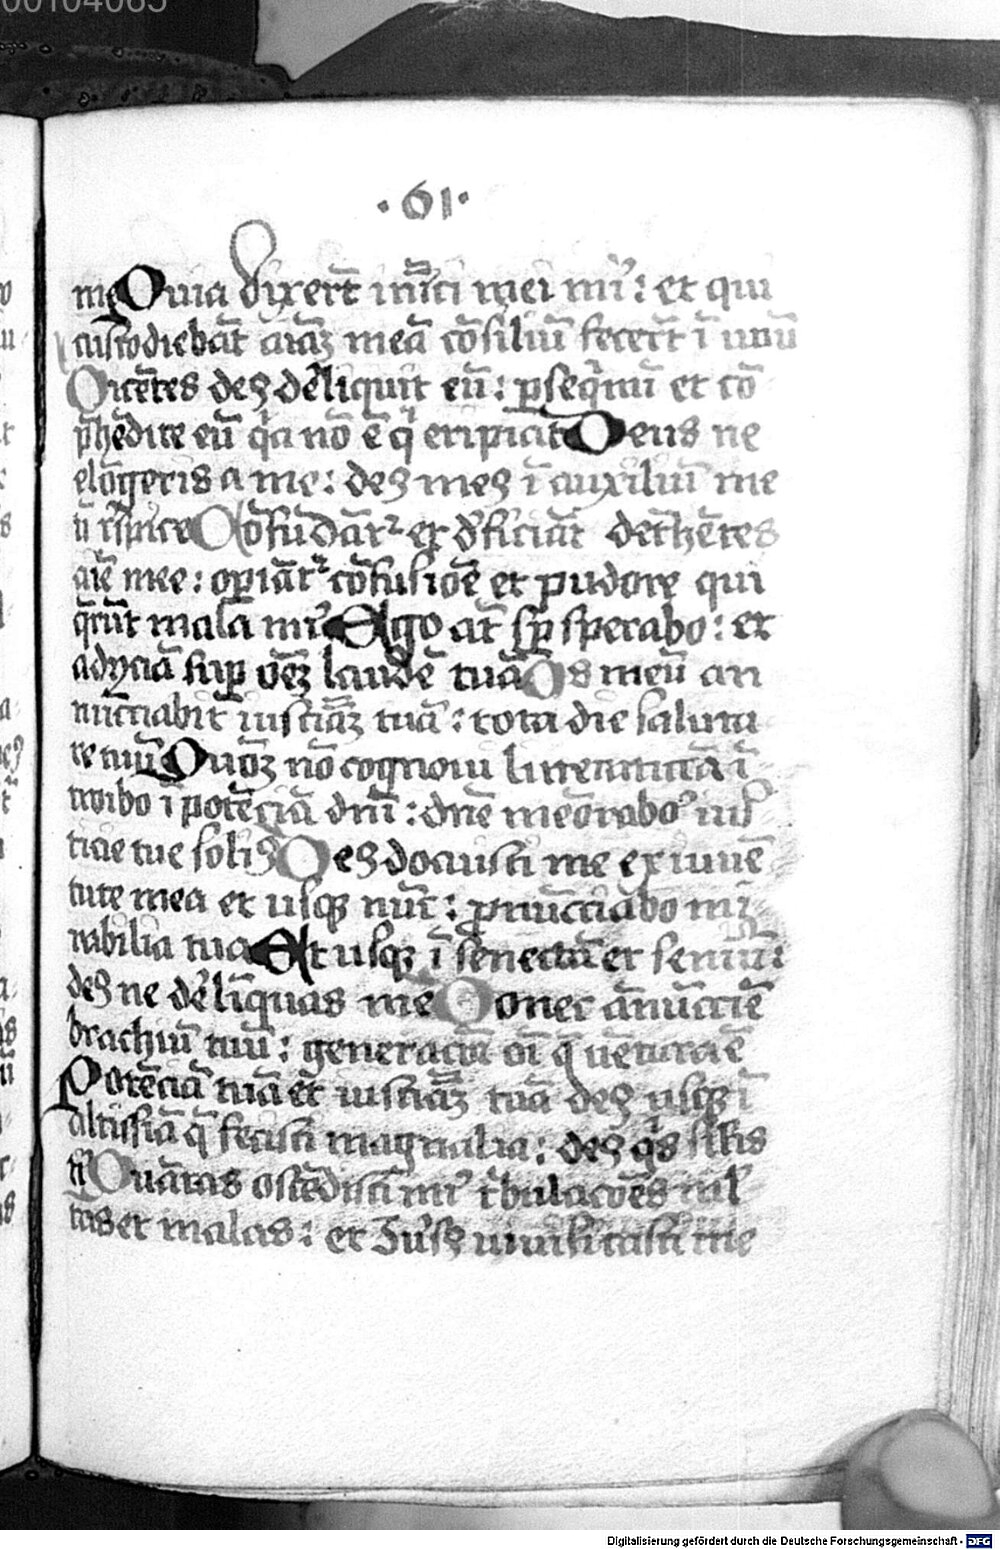 00104065
·61·
me Quia dixert̄ inīci mei mi: et qui
custodiebāt aīaȝ meā cōsiliū fecert̄ ī unū
Dicētes deꝰ deliquit eū: ꝑseqmī et cō
p̄hēdite eū qa nō ē q eripiat Deus ne
elōgeris a me: deꝰ meꝰ ī auxiliū me
ū rspice Cōfūdāt᷑ et dficiāt det̄hētes
aīe mee: opiāt᷑ cōfusiōe et pudore qui
q̄rūt mala mi Ego āt sp̄ sperabo: et
adyciā suꝑ oēȝ laudē tuā Os meū an
nūcciabit iusticiāȝ tuā: tota die saluta
re tuū Quōȝ nō cognoui litteraturā ī
troibo ī potēciā dnī: dnē meōrabor ius
ticie tue soliꝰ Deꝰ docuisti me ex iuuē
tute mea et usqȝ nūc: ꝓnūcciabo mi
rabilia tua Et usqȝ ī senectā et seniū:
deꝰ ne deliquas me Donec ānūcciē
brachiū tuū: generacōi oī q̄ uētura ē
Potēciā tuā et iusticiāȝ tuā deꝰ usqȝ ī
altissiā q̄ fecisti magnalia: deꝰ qs silis
ti Quātas ostēdisti mi tbulacōes mul
tas et malas: et ꝯuersꝰ uiuificasti me
Digitalisierung gefördert durch die Deutsche Forschungsgemeinschaft - DFG